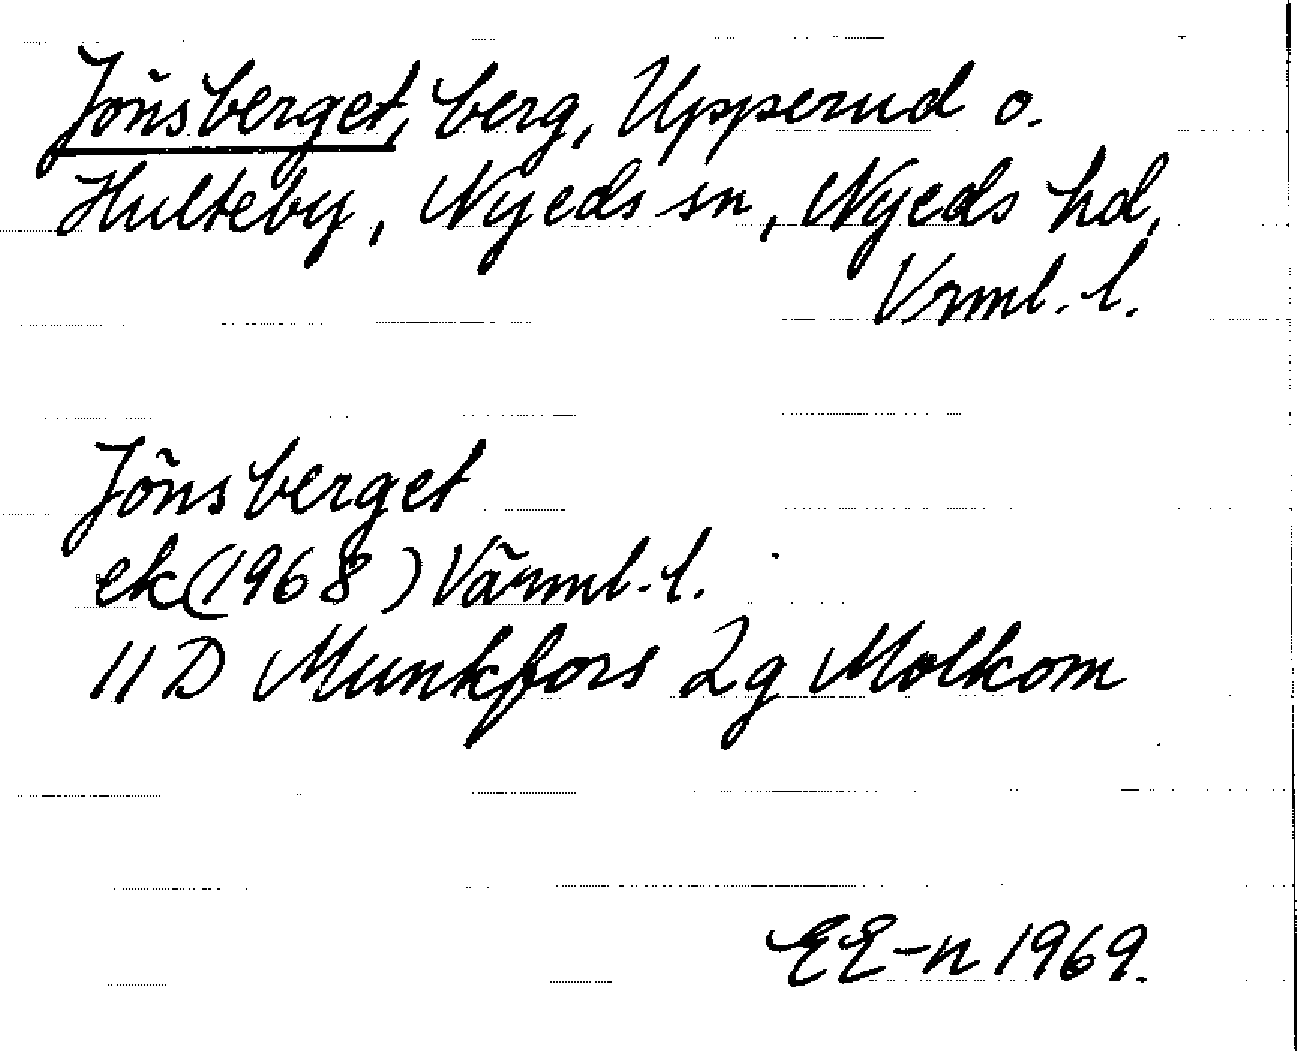 Jönsberget, berg, Upperud o.
Hulteby, Nyeds sn, Nyeds hd,
Vrml. l.
Jönsberget
ek (1968) Värml. l.
11 D Munkfors 2g Molkom
EE-n 1969.